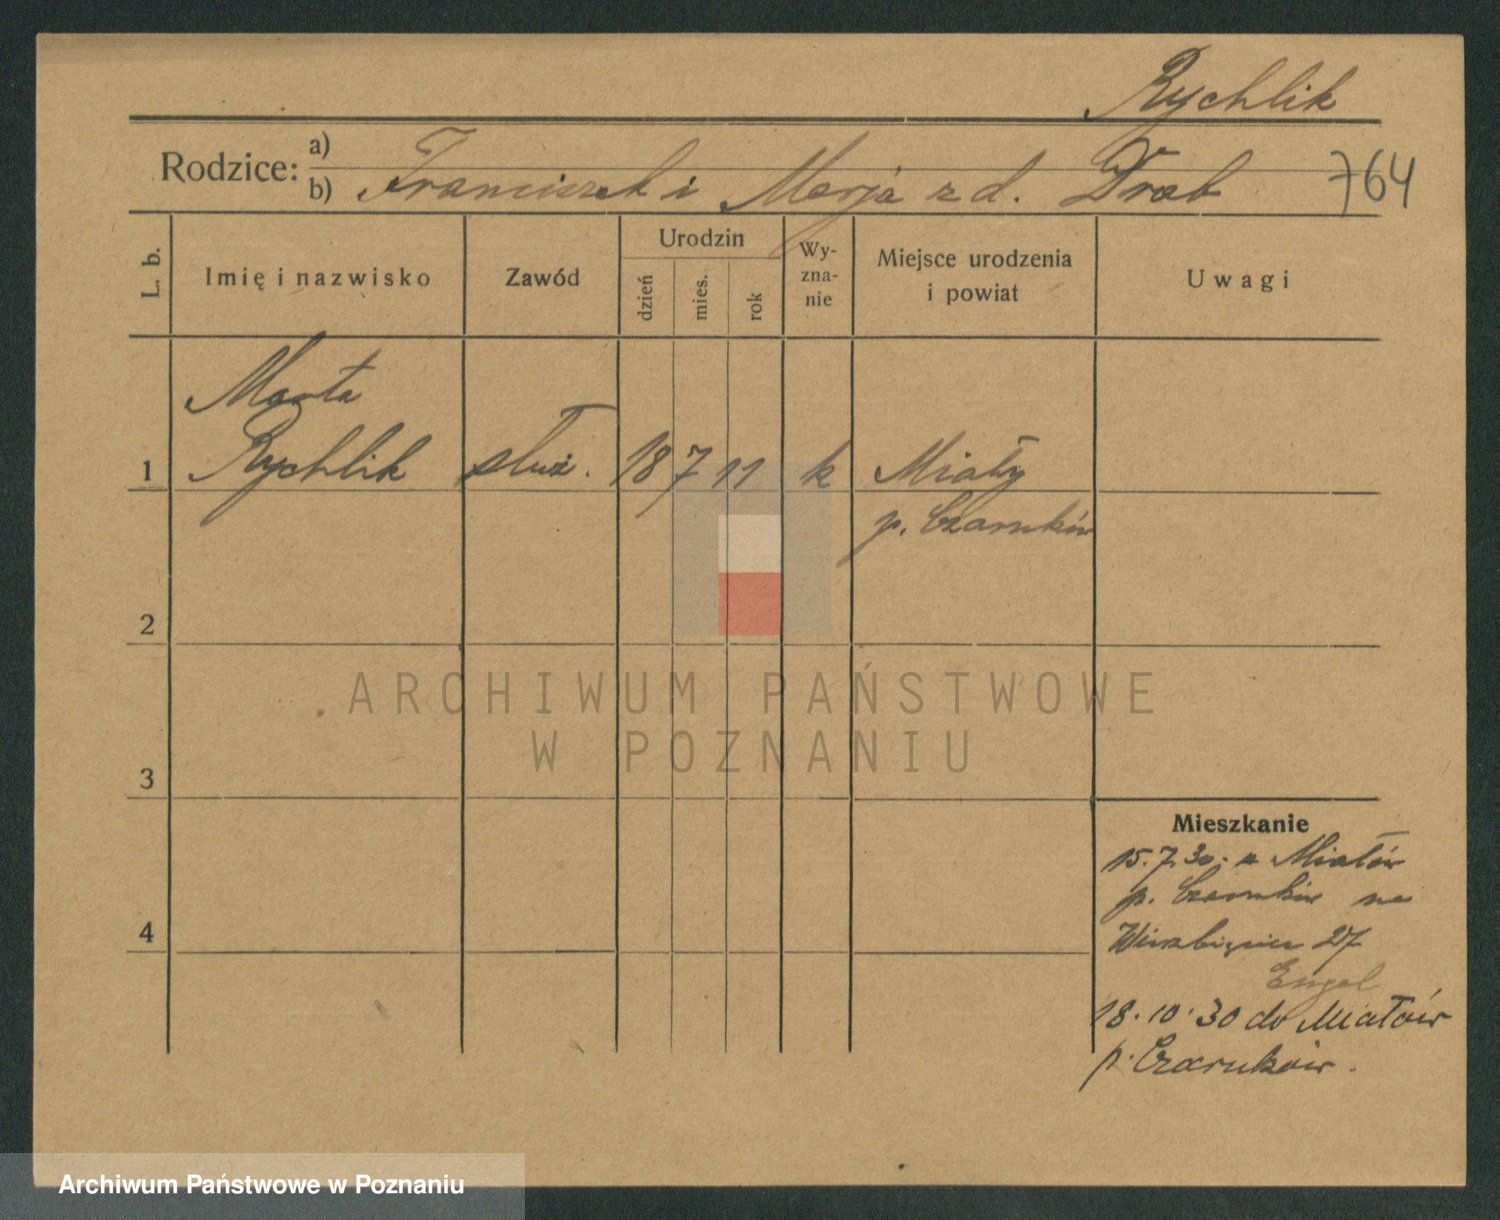 Rychlik
Rodzice:
a)
b) Franciszek i Marja z d. Drab
764
L. b.
Imię i nazwisko
Zawód
Urodzin
dzień
mies.
rok
Wy-
zna-
nie
Miejsce urodzenia
i powiat
Uwagi
Marta
1 Rychlik służ. 18 7 11 k Miały
p. Czarnków
2
3
4
Mieszkanie
15.7.30. z Miałów
p. Czarnków na
Wierzbięcice 27
Engel
18.10.30 do Miałów
p. Czarnków.
ARCHIWUM PAŃSTWOWE
W POZNANIU
Archiwum Państwowe w Poznaniu